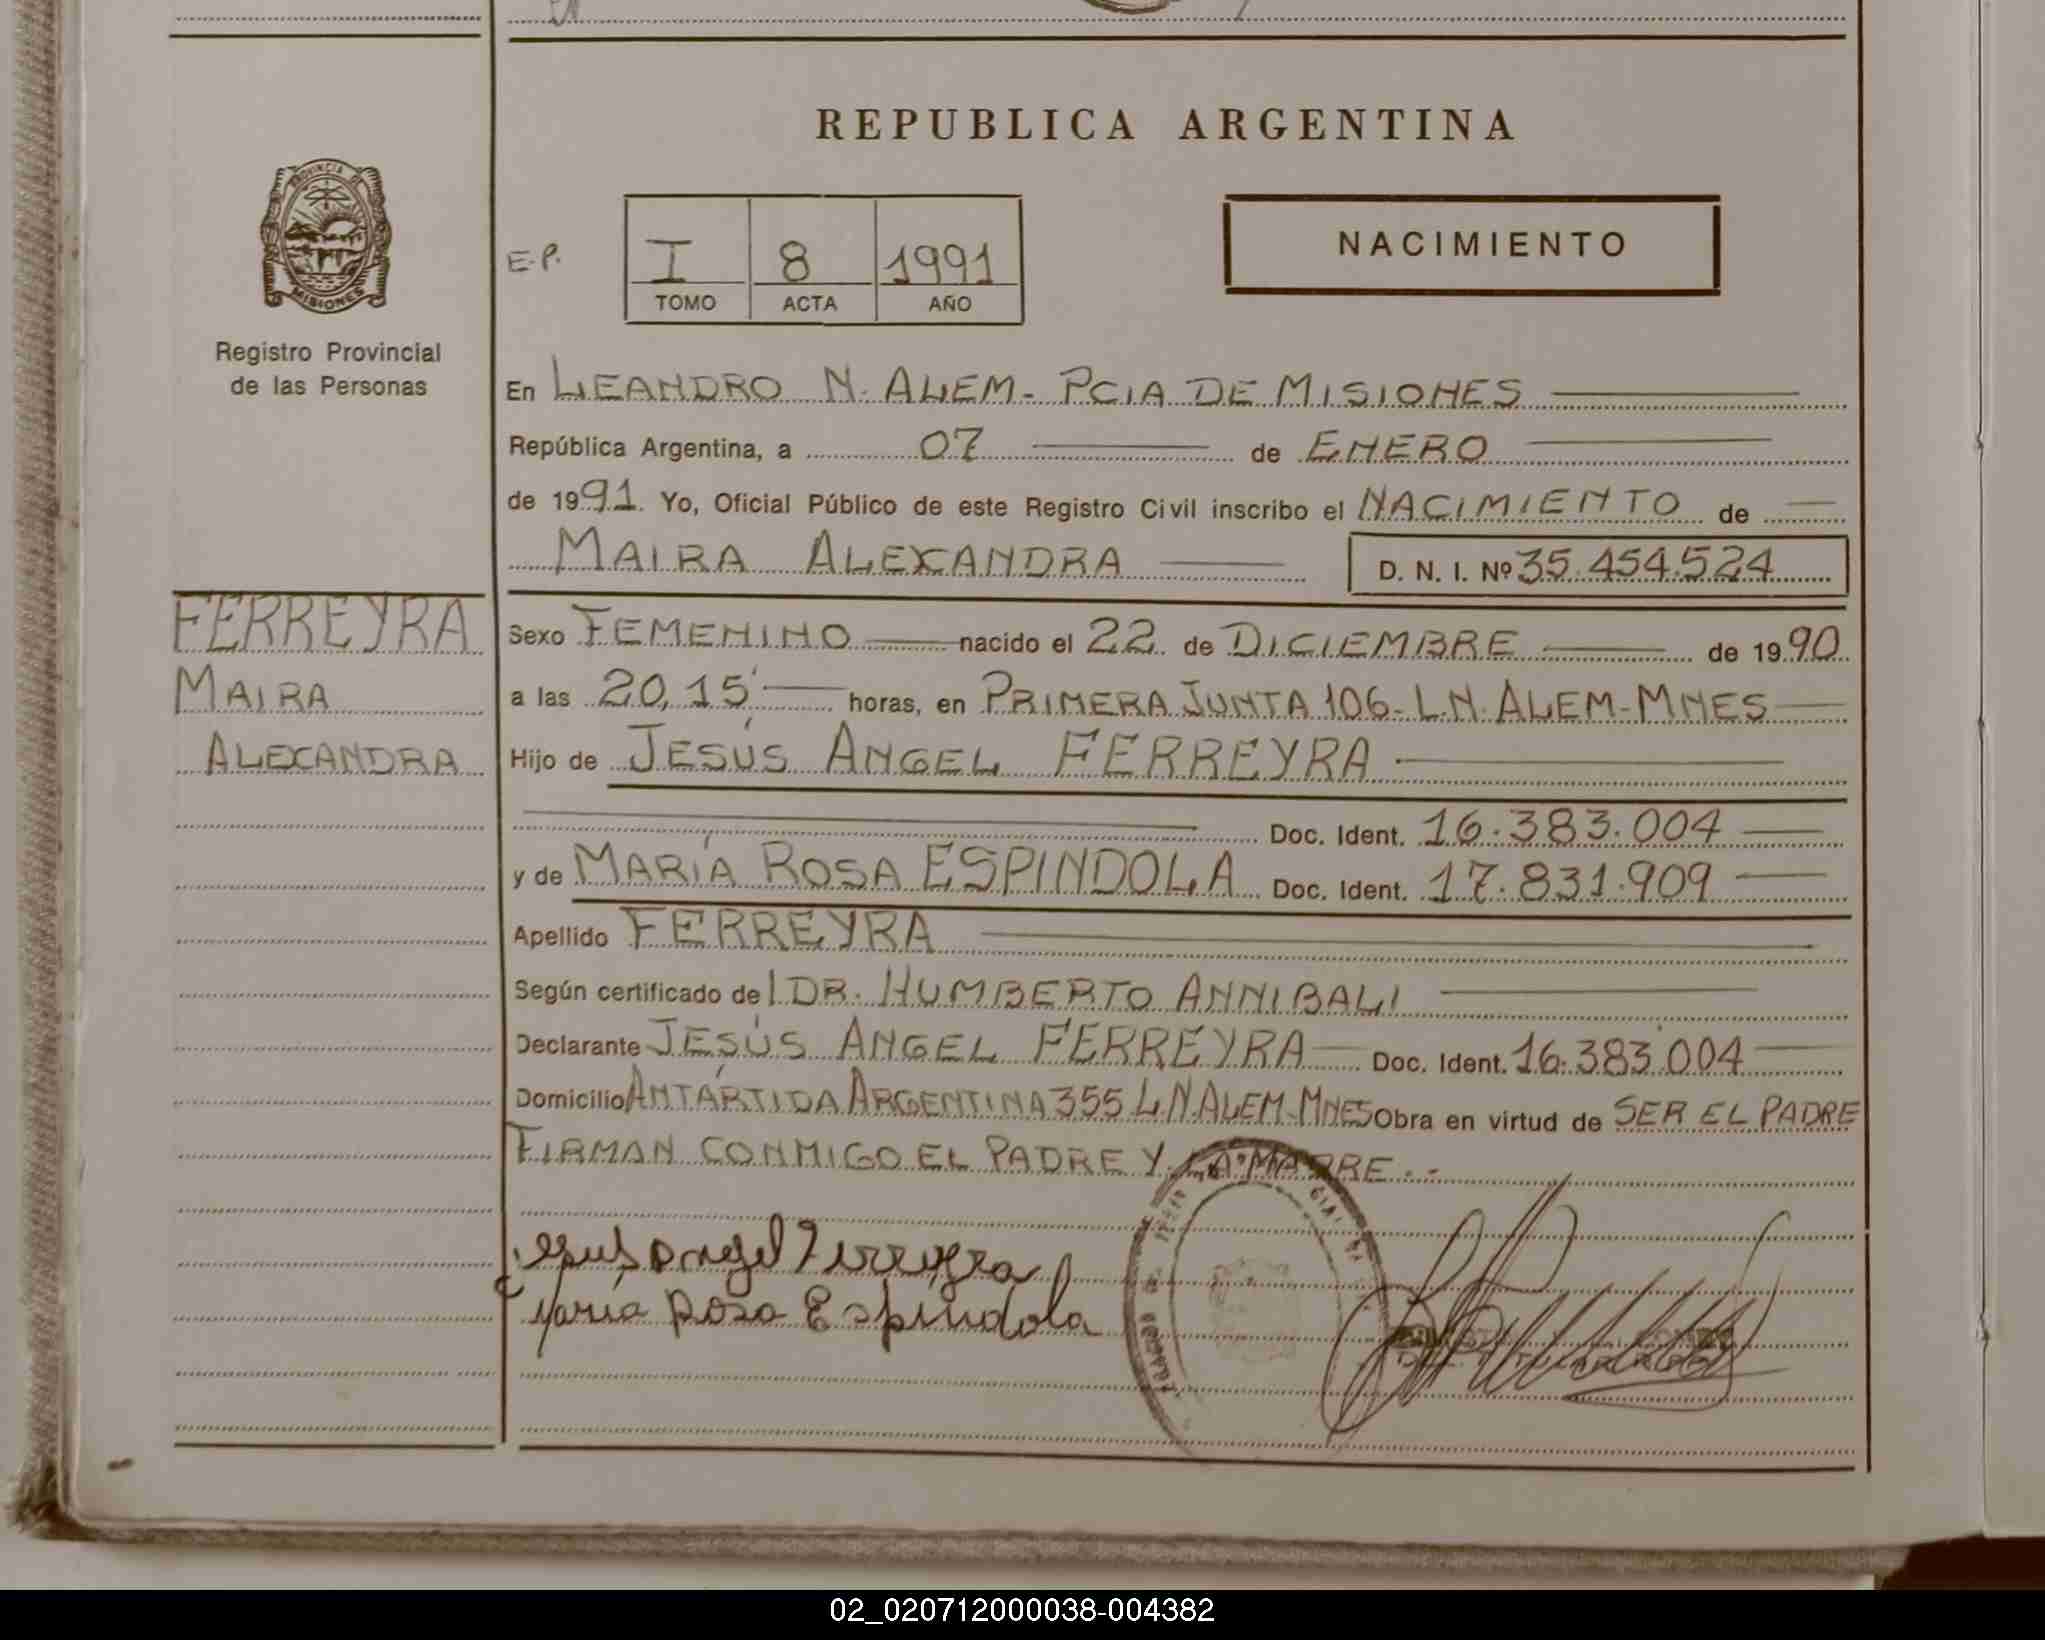 REPUBLICA ARGENTINA
PROVINCIA DE
MISIONES
Registro Provincial
de las Personas
E.P.
I 8 1991
TOMO ACTA AÑO
NACIMIENTO
En LEANDRO N. ALEM - PCIA DE MISIONES
República Argentina, a 07 de ENERO
de 1991. Yo, Oficial Público de este Registro Civil inscribo el NACIMIENTO de
MAIRA ALEXANDRA D. N. I. Nº 35.454.524
FERREYRA
MAIRA
ALEXANDRA
Sexo FEMENINO nacido el 22 de DICIEMBRE de 1990
a las 20,15' horas, en PRIMERA JUNTA 106 - L.N. ALEM - MNES
Hijo de JESÚS ANGEL FERREYRA
Doc. Ident. 16.383.004
y de MARÍA ROSA ESPINDOLA Doc. Ident. 17.831.909
Apellido FERREYRA
Según certificado del DR. HUMBERTO ANNIBALI
Declarante JESÚS ANGEL FERREYRA Doc. Ident. 16.383.004
Domicilio ANTÁRTIDA ARGENTINA 355 L.N. ALEM - MNES Obra en virtud de SER EL PADRE
FIRMAN CONMIGO EL PADRE Y LA MADRE.-
Jesus Angel Ferreyra
María Rosa Espíndola
02_020712000038-004382